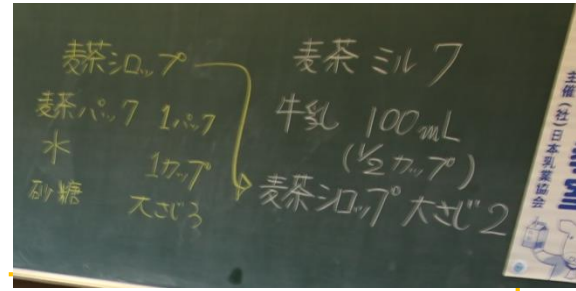 麦茶シロップ
麦茶パック 1パック
水 1カップ
砂糖 大さじ3
麦茶ミルク
牛乳 100mL
(1/2カップ)
麦茶シロップ 大さじ2
主催 (社)日本乳業協会